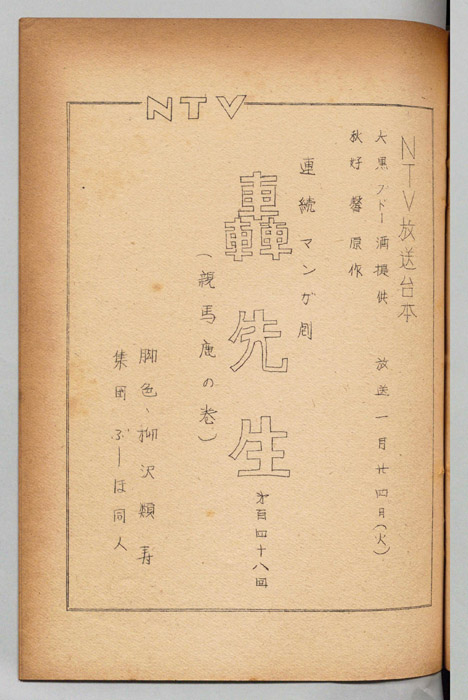 NTV
NTV放送台本
大黒ブドー酒提供　放送一月廿四日(火)
秋好馨原作
連続マンガ劇
轟先生
第百四十八回
(親馬鹿の巻)
脚色、柳沢類寿
集団ぶーほ同人